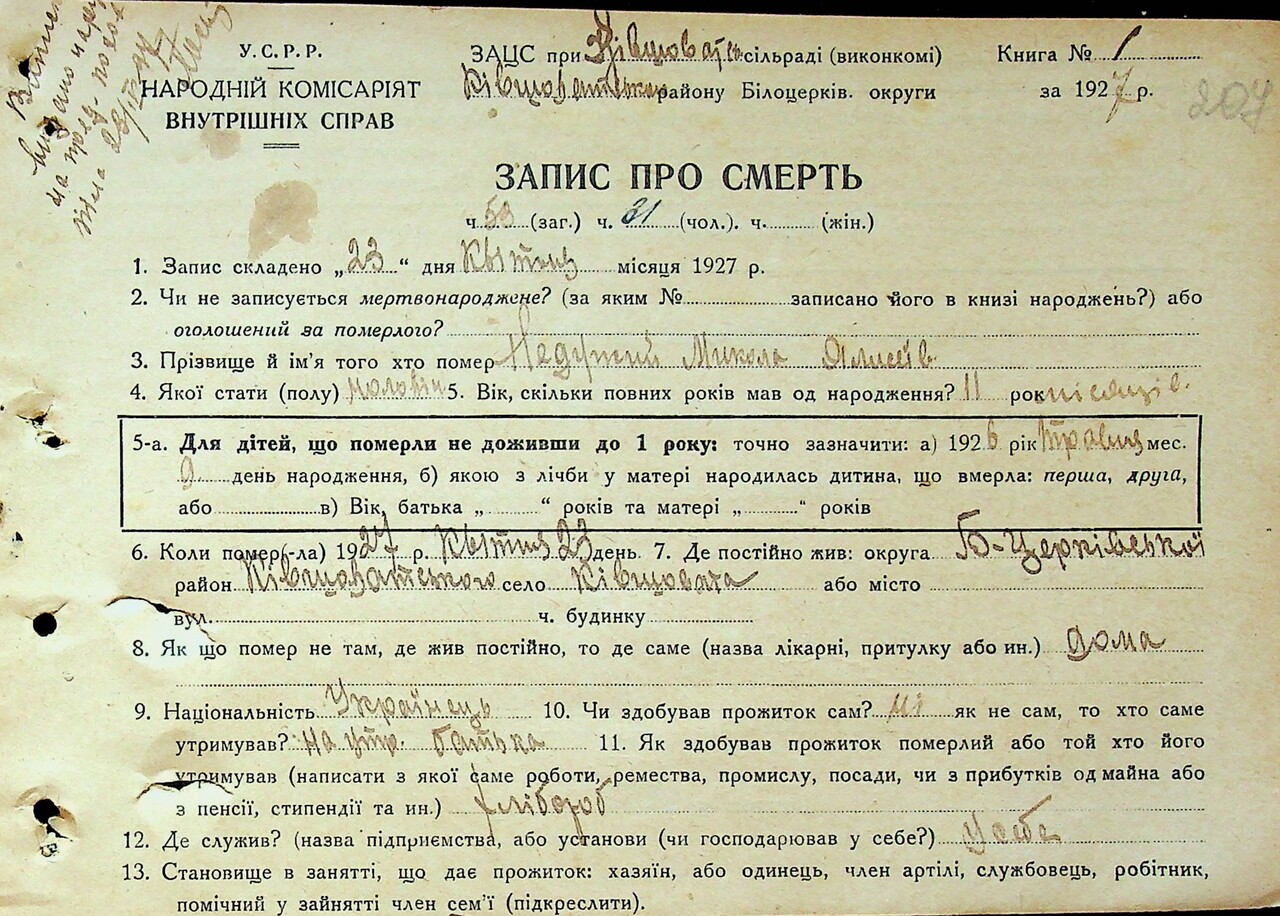 У.С.Р.Р.
НАРОДНІЙ КОМІСАРІЯТ
ВНУТРІШНІХ СПРАВ
ЗАЦС при Ківшоватсь сільраді (виконкомі)
Ківшоватського району Білоцерків. округи
Книга № 1
за 1927 р.
207
ЗАПИС ПРО СМЕРТЬ
ч. 59 (заг.) ч. 31 (чол.). ч. (жін.)
1. Запис складено „23“ дня Квітня місяця 1927 р.
2. Чи не записується мертвонароджене? (за яким № записано його в книзі народжень?) або
оголошений за померлого?
3. Прізвище й ім'я того хто помер Микола
4. Якої стати (полу) 5. Вік, скільки повних років мав од народження? 11 рок місяців.
5-а. Для дітей, що померли не доживши до 1 року: точно зазначити: а) 1926 рік травня мес.
9 день народження, б) якою з лічби у матері народилась дитина, що вмерла: перша, друга,
або в) Вік, батька „ “ років та матері „ “ років
6. Коли помер(-ла) 1927 р. Квітня 23 день 7. Де постійно жив: округа Б-Церківської
район Ківшоватського село Ківшовата або місто
вул. ч. будинку
8. Як що помер не там, де жив постійно, то де саме (назва лікарні, притулку або ин.) Дома
9. Національність Українець 10. Чи здобував прожиток сам? ні як не сам, то хто саме
утримував? на утр. батька 11. Як здобував прожиток померлий або той хто його
утримував (написати з якої саме роботи, ремества, промислу, посади, чи з прибутків од майна або
з пенсії, стипендії та ин.) хлібороб
12. Де служив? (назва підприємства, або установи (чи господарював у себе?) у себе
13. Становище в занятті, що дає прожиток: хазяїн, або одинець, член артілі, службовець, робітник,
помічний у зайнятті член сем'ї (підкреслити).